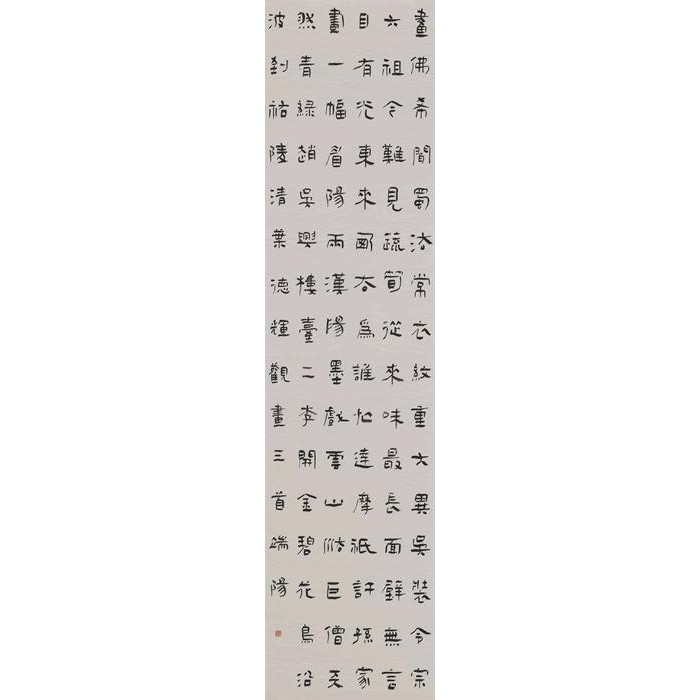 畫佛希聞蜀法常衣紋重大異吳裝令宗
六祖今難見疏筍從來味最長面壁無言
目有光東來西去為誰忙達摩祇許孫家
畫一幅眉陽兩漢陽墨戲雲山似巨僧天
然青綠趙吳興樓臺二李開金碧花鳥沿
波到祐陵清葉德輝觀畫三首端陽